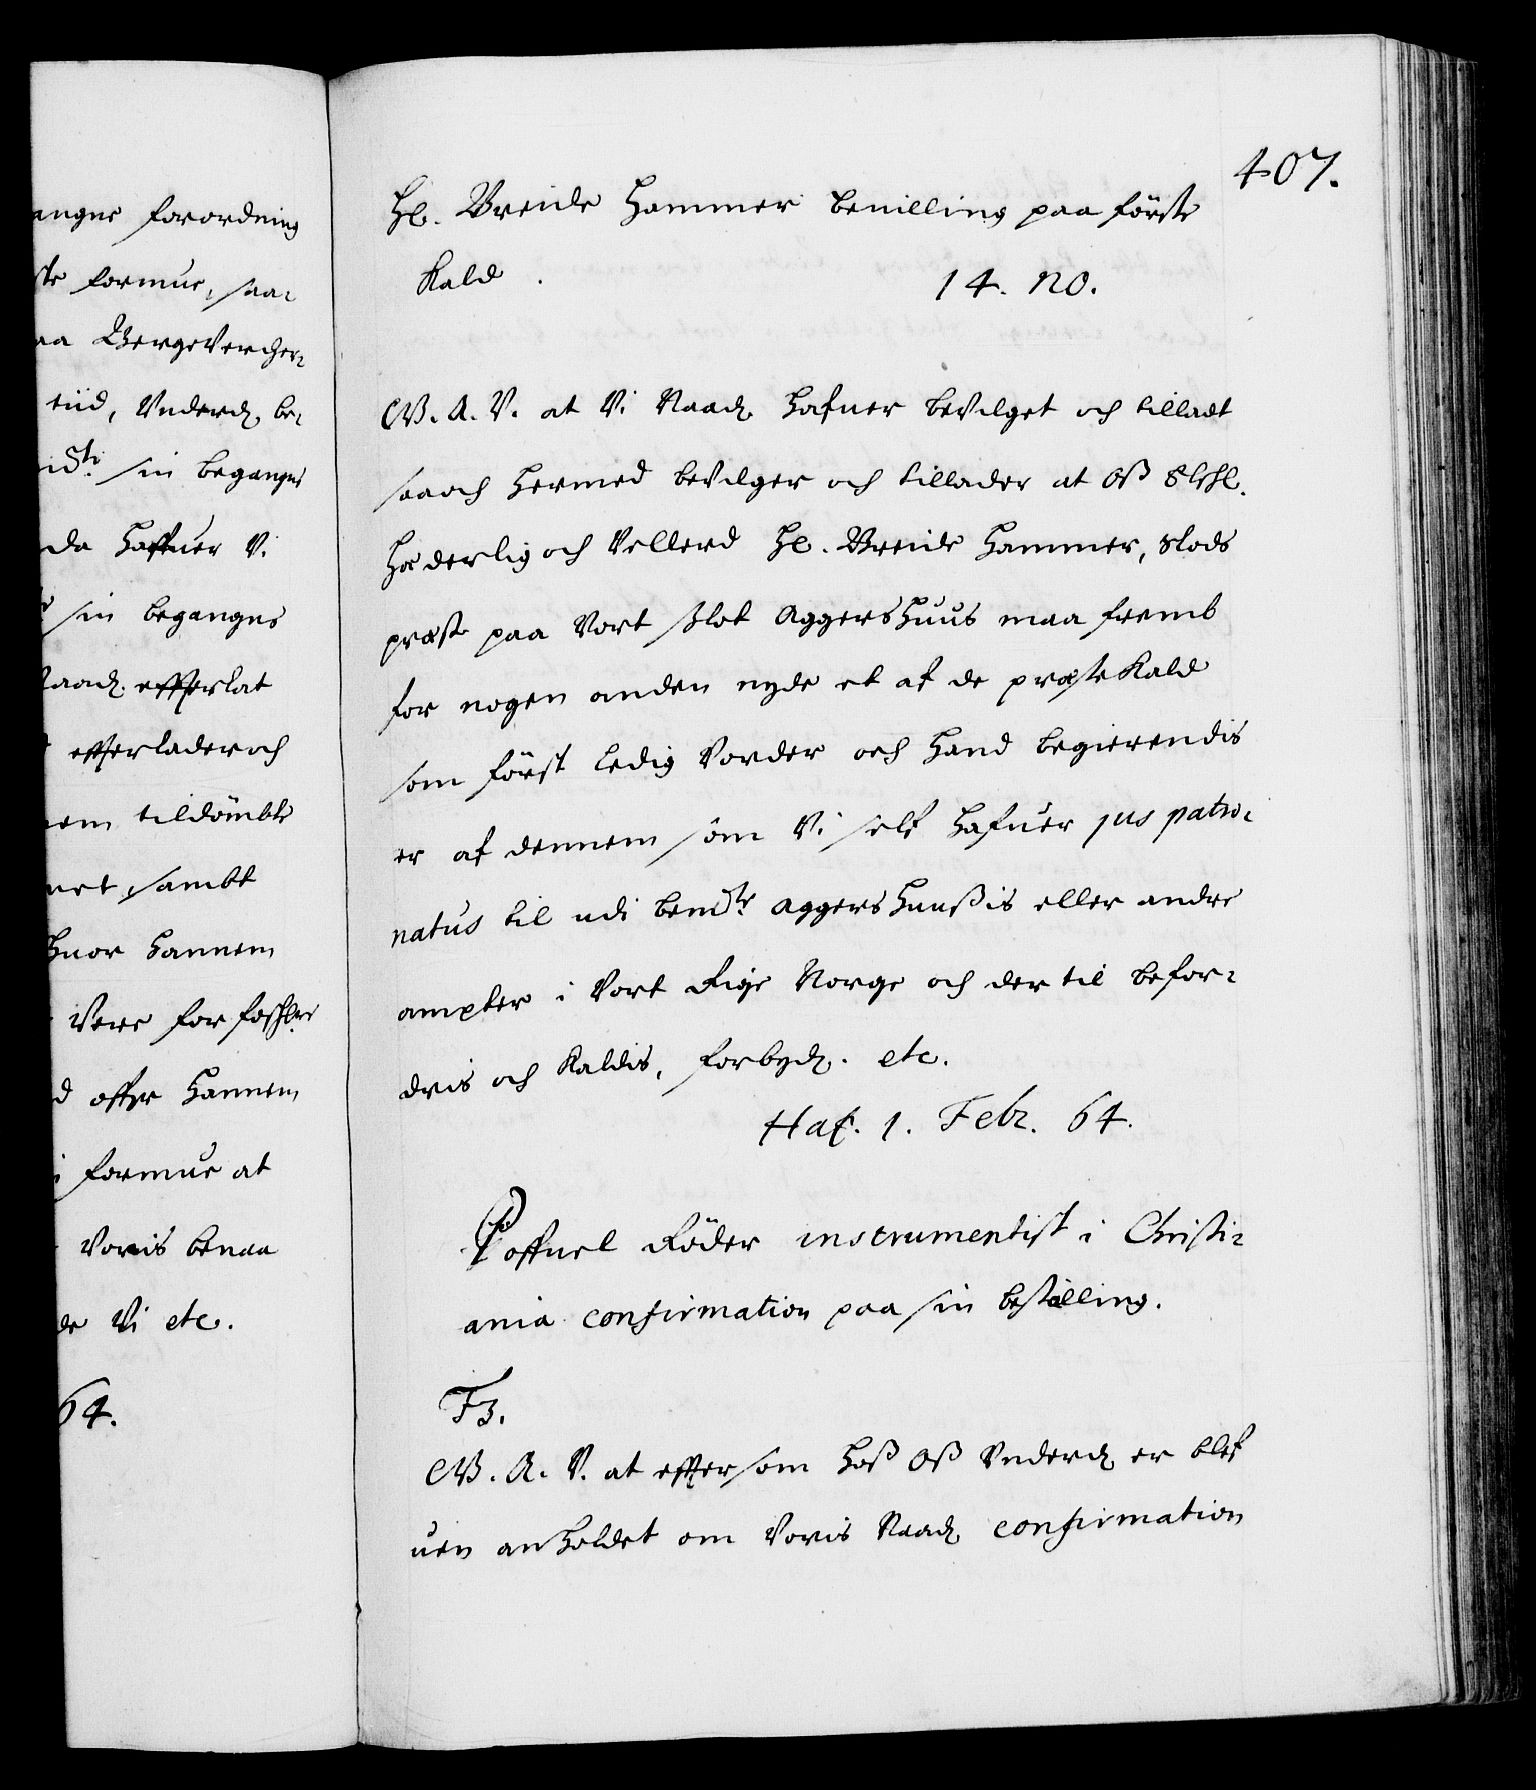 angne forordning
ste formue, saa-
aa Bergevercher-
tiid, Underd. be-
sin begangne
da haffuer Vi
sin begangne
Naad. effterlat
effterlader och
nem tildömbte
net, sambt
huor hannem
Vere for
d offuer hannem
i formue at
Voris benaa
de Vi etc.
64.
407.
Hr. Breide Hammer bevilling paa förste
Kald. 14. no.
C V. A. V. at Vi Naad. hafuer bevilget och tilladt
saa och hermed bevilger och tillader at Oß Elskl.
hæderlig och Vellerd Hr. Breide Hammer, Slods
præst paa Vort Slot Aggershuus maa fremb
for nogen anden nyde et af de præste Kald
som först ledig Vorder och hand begierendis
er af dennem som Vi self hafuer jus patro-
natus til udi bemte Aggershuußis eller andre
ampter i Vort Rige Norge och der til befor-
dris och Kaldis, forbyd. etc.
Haf. 1. Febr. 64.
Poffuel Röder instrumentist i Christi-
ania confirmation paa sin bestilling.
F3.
C V. A. V. at efftersom hoß Oß Underd er blef
uen anholdet om Voris Naad confirmation